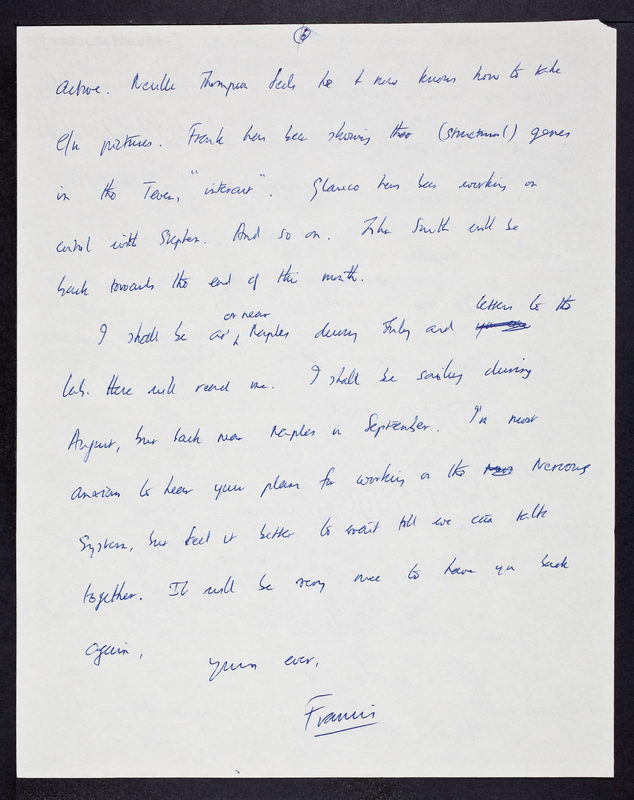 6
active. Neville Thompson feels he + now knows how to take
E/M pictures. Frank has been showing that (structural) genes
in the Teven, "interact". Glauco has been working on
with Stephen. And so on. John Smith will be
back towards the end of the month.
I shall be at or near Naples during July and letters to the
lab. there will reach me. I shall be sailing during
August, but back near Naples in September. I'm most
anxious to hear your plans for working on the Nervous
System, but feel it better to wait till we can talk
together. It will be very nice to have you back
again,
yours ever,
Francis